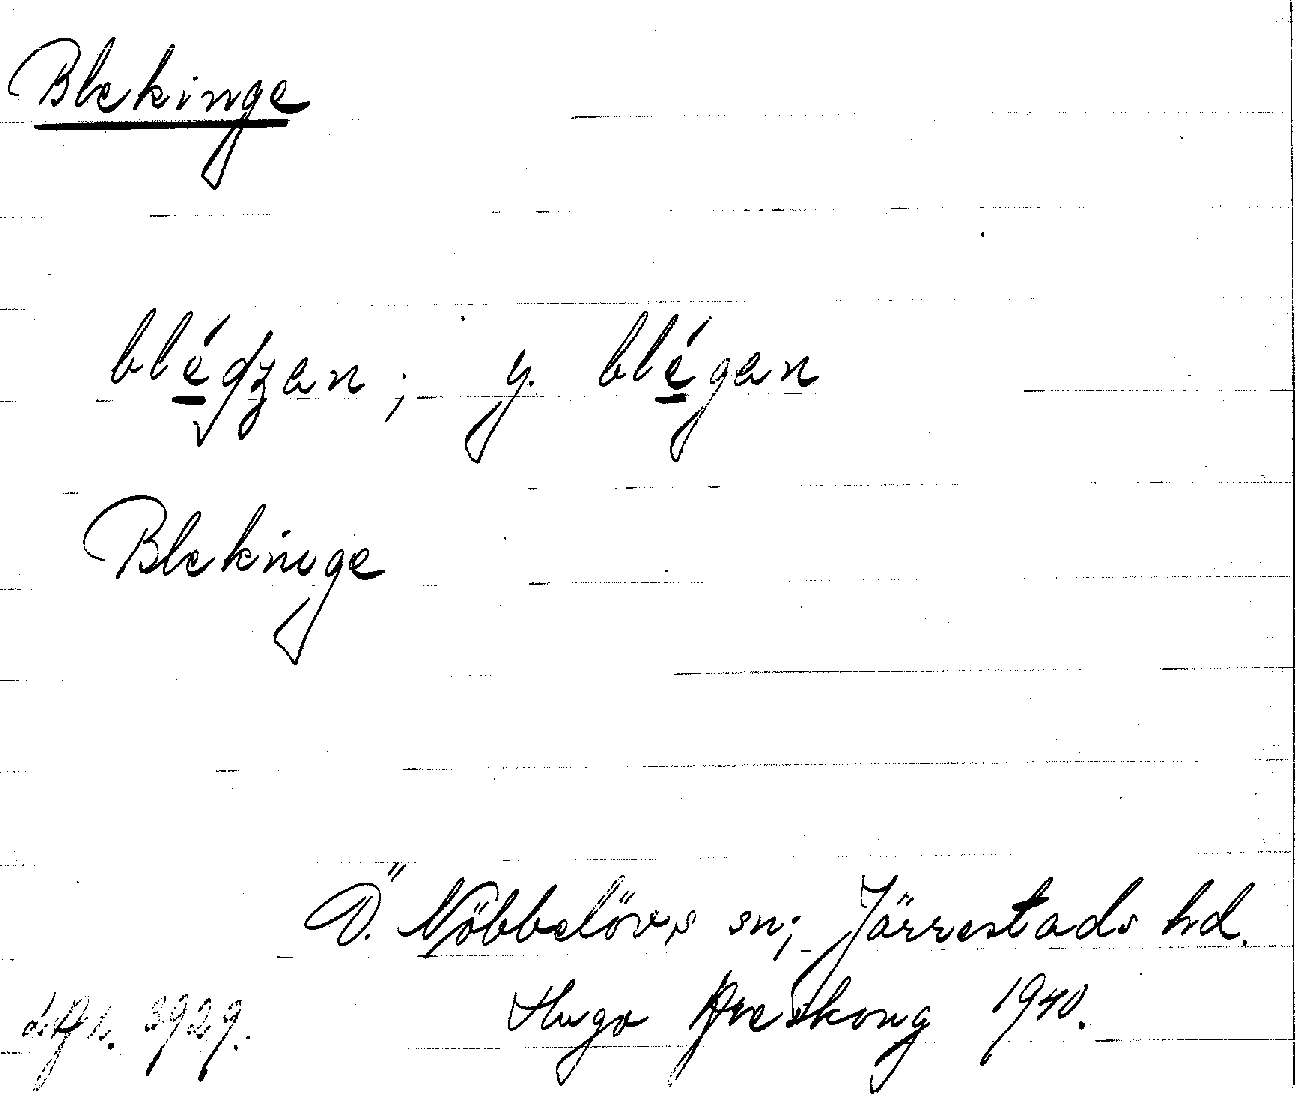 Blekinge
blédzan; y. blégan
Blekinge
Ö. Nöbbelövs sn; Järrestads hd.
Hugo Areskoug 1940.
3929.